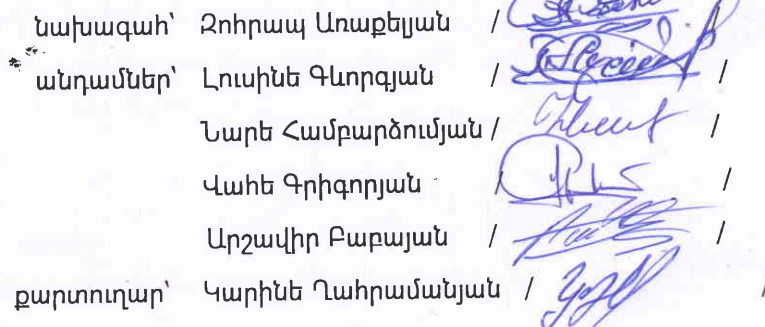 նախագահ՝ Զոհրապ Առաքելյան / 
անդամներ՝ Լուսինե Գևորգյան / /
Նարե Համբարձումյան / /
Վահե Գրիգորյան / /
Արշավիր Բաբայան / /
քարտուղար՝ Կարինե Ղահրամանյան / /